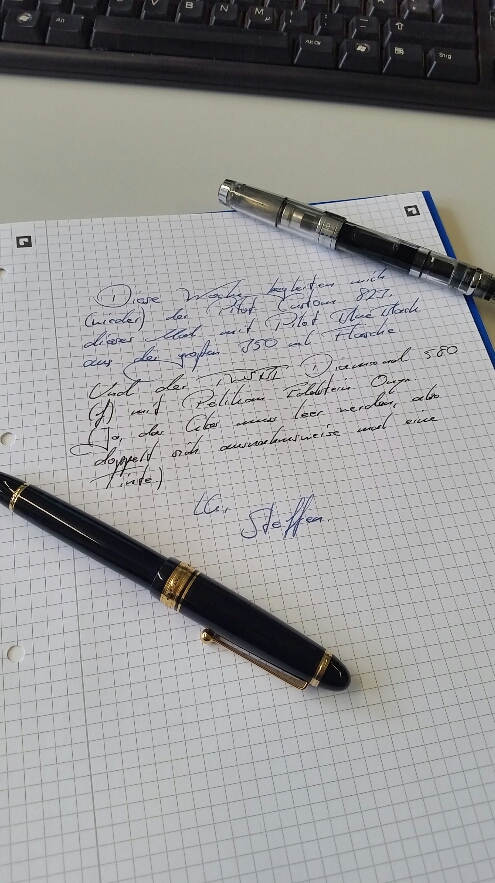 V B N M µ
Alt
Alt Gr
Strg
Diese Woche begleiten mich
(wieder) der Pilot Custom 823,
dieses Mal mit Pilot blue black
aus der großen 350 ml Flasche
Und der TWSBI Diamond 580
(f) mit Pelikan Edelstein Onyx
(Ja, das muss leer werden, also
doppelt sich ausnahmsweise mal eine
Tinte)
LG,
Steffen